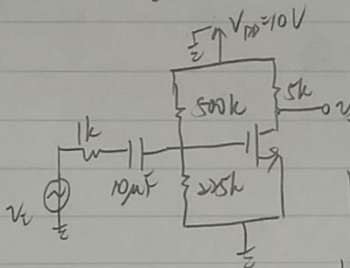 V_DD=10V
500k
5k
1k
10μF
225k
V_i